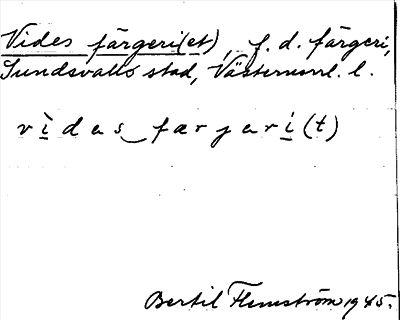 Vides färgeri(et), f. d. färgeri,
Sundsvalls stad, Västernorrl. l.
vìdas_færjerí(t)
Bertil Flemström 1945.